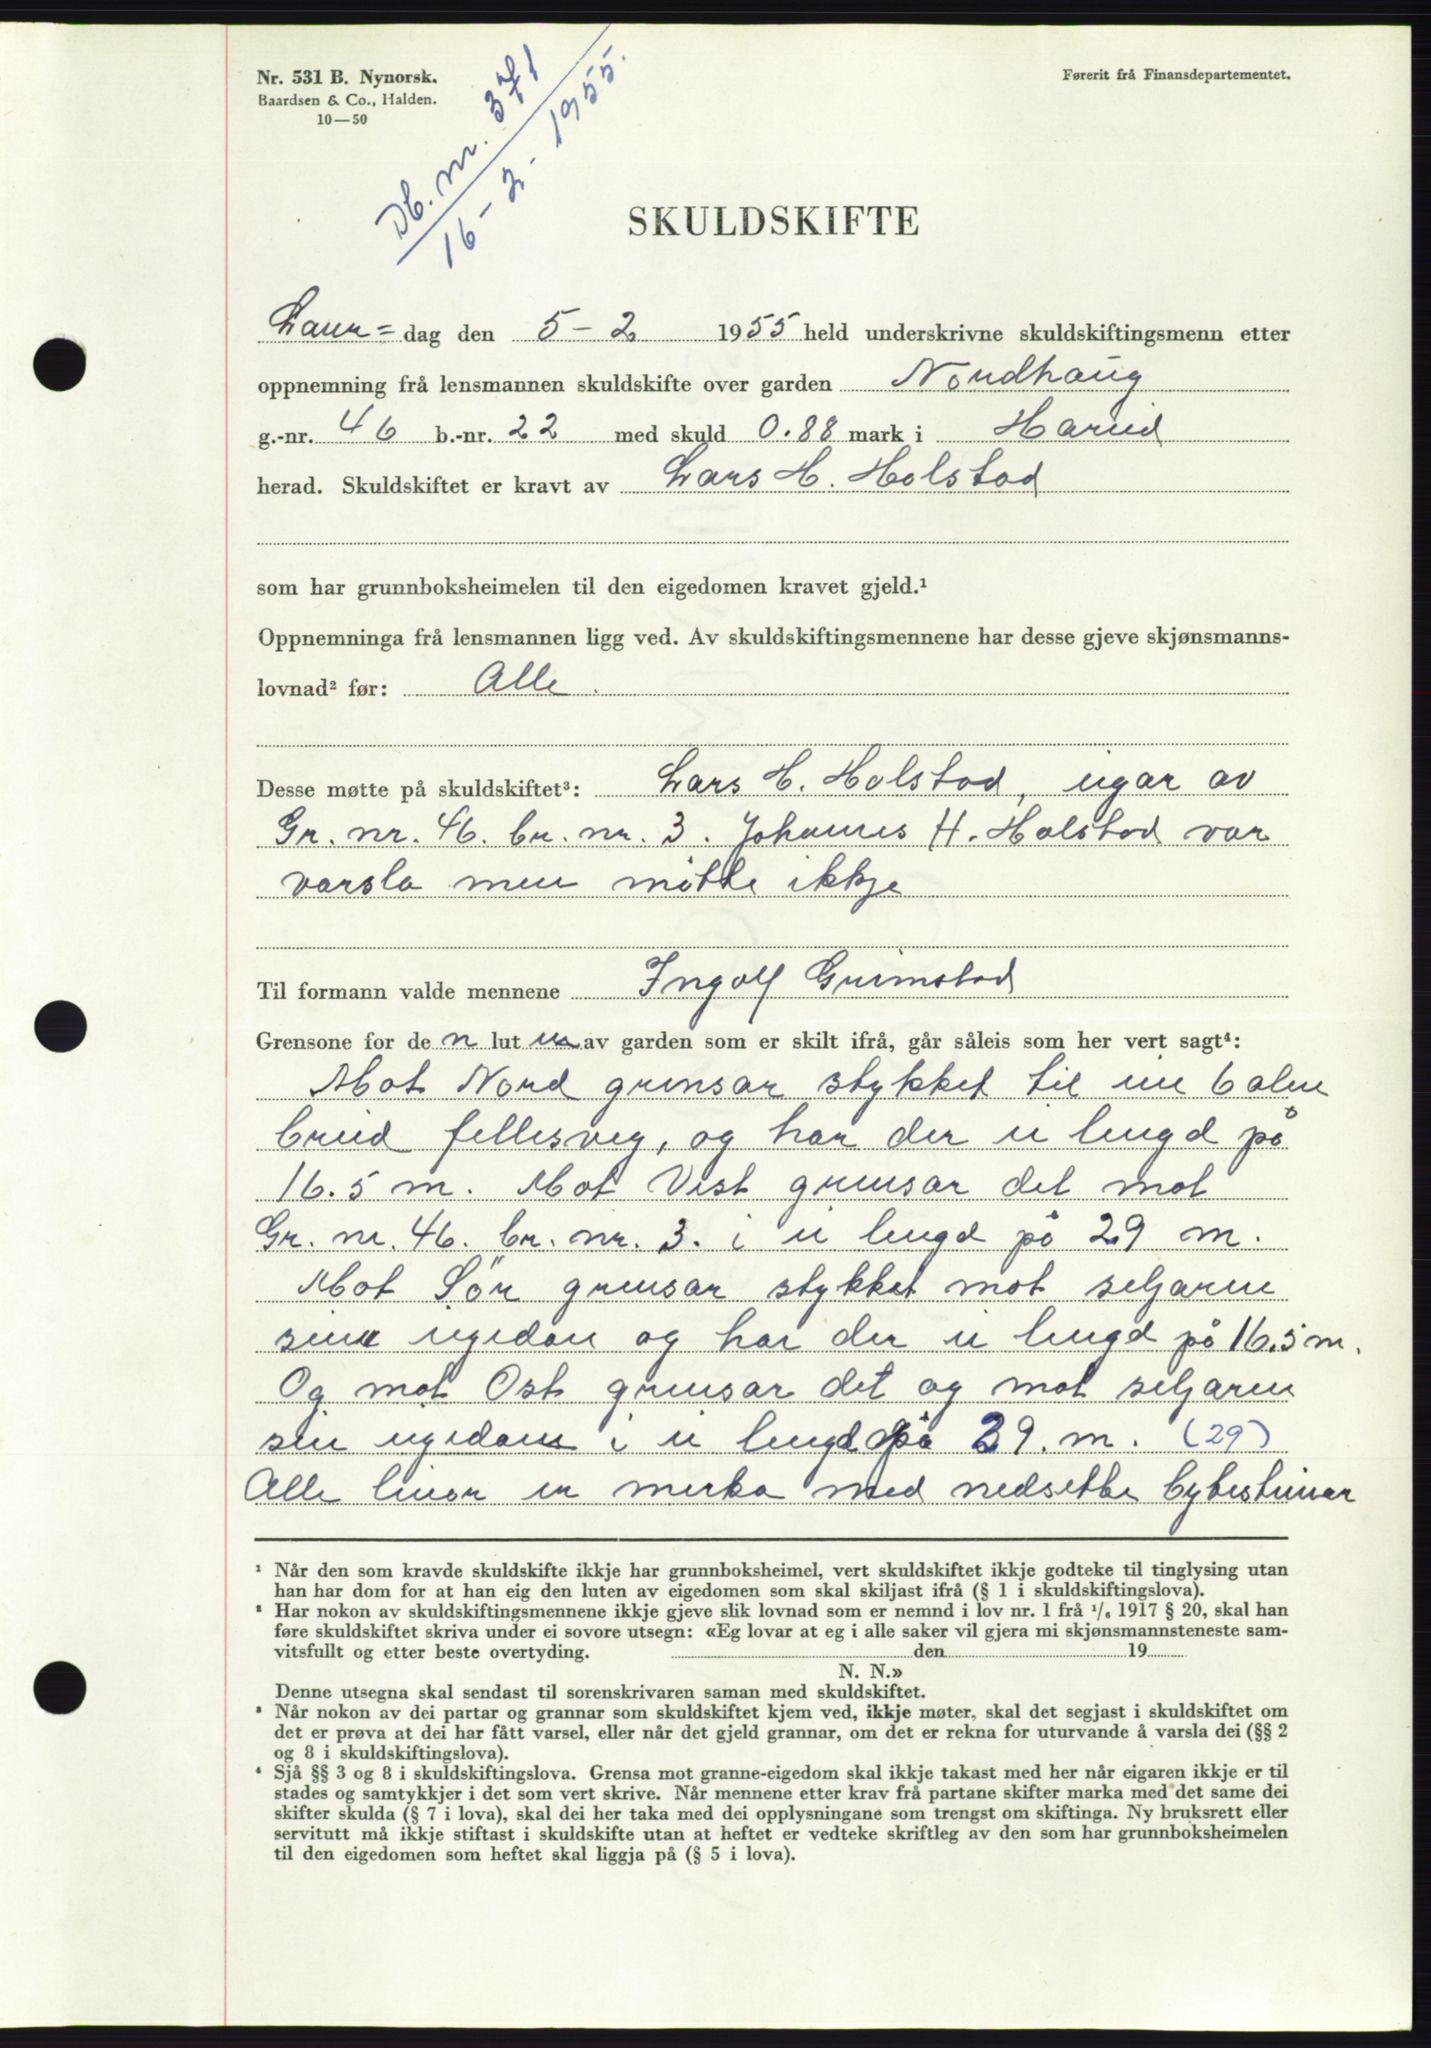 Nr. 531 B. Nynorsk.
Baardsen & Co., Halden.
10—50
Db. nr. 371
16 - 2 - 1955.
Førerit frå Finansdepartementet.
SKULDSKIFTE
Laur= dag den 5-2 1955 held underskrivne skuldskiftingsmenn etter
oppnemning frå lensmannen skuldskifte over garden Nordhaug
g.-nr. 46 b.-nr. 22 med skuld 0.88 mark i Hareid
herad. Skuldskiftet er kravt av Lars H. Holstad
som har grunnboksheimelen til den eigedomen kravet gjeld.¹
Oppnemninga frå lensmannen ligg ved. Av skuldskiftingsmennene har desse gjeve skjønsmanns-
lovnad² før: Alle.
Desse møtte på skuldskiftet³: Lars H. Holstad, eigar av
Gr. nr. 46. br. nr. 3. Johannes H. Holstad var
varsla men møtte ikkje
Til formann valde mennene Ingolf Grimstad
Grensone for de n lut en av garden som er skilt ifrå, går såleis som her vert sagt⁴:
Mot Nord grensar stykket til ein 6 alen
breid fellesveg, og har der ei lengd på
16.5 m. Mot Vest grensar det mot
Gr. nr. 46. br. nr. 3. i ei lengd på 29 m.
Mot Sör grensar stykket mot seljaren
sin eigedom og har der ei lengd på 16.5 m.
Og mot Ost grensar det og mot seljaren
sin eigedom i ei lengd på 29. m. (29)
Alle linor er merka med nedsette bytesteinar
¹ Når den som kravde skuldskifte ikkje har grunnboksheimel, vert skuldskiftet ikkje godteke til tinglysing utan
han har dom for at han eig den luten av eigedomen som skal skiljast ifrå (§ 1 i skuldskiftingslova).
² Har nokon av skuldskiftingsmennene ikkje gjeve slik lovnad som er nemnd i lov nr. 1 frå ¹/₆ 1917 § 20, skal han
føre skuldskiftet skriva under ei sovore utsegn: «Eg lovar at eg i alle saker vil gjera mi skjønsmannsteneste sam-
vitsfullt og etter beste overtyding. den 19
N. N.»
Denne utsegna skal sendast til sorenskrivaren saman med skuldskiftet.
³ Når nokon av dei partar og grannar som skuldskiftet kjem ved, ikkje møter, skal det segjast i skuldskiftet om
det er prøva at dei har fått varsel, eller når det gjeld grannar, om det er rekna for uturvande å varsla dei (§§ 2
og 8 i skuldskiftingslova).
⁴ Sjå §§ 3 og 8 i skuldskiftingslova. Grensa mot granne-eigedom skal ikkje takast med her når eigaren ikkje er til
stades og samtykkjer i det som vert skrive. Når mennene etter krav frå partane skifter marka med det same dei
skifter skulda (§ 7 i lova), skal dei her taka med dei opplysningane som trengst om skiftinga. Ny bruksrett eller
servitutt må ikkje stiftast i skuldskifte utan at heftet er vedteke skriftleg av den som har grunnboksheimelen
til den eigedomen som heftet skal liggja på (§ 5 i lova).